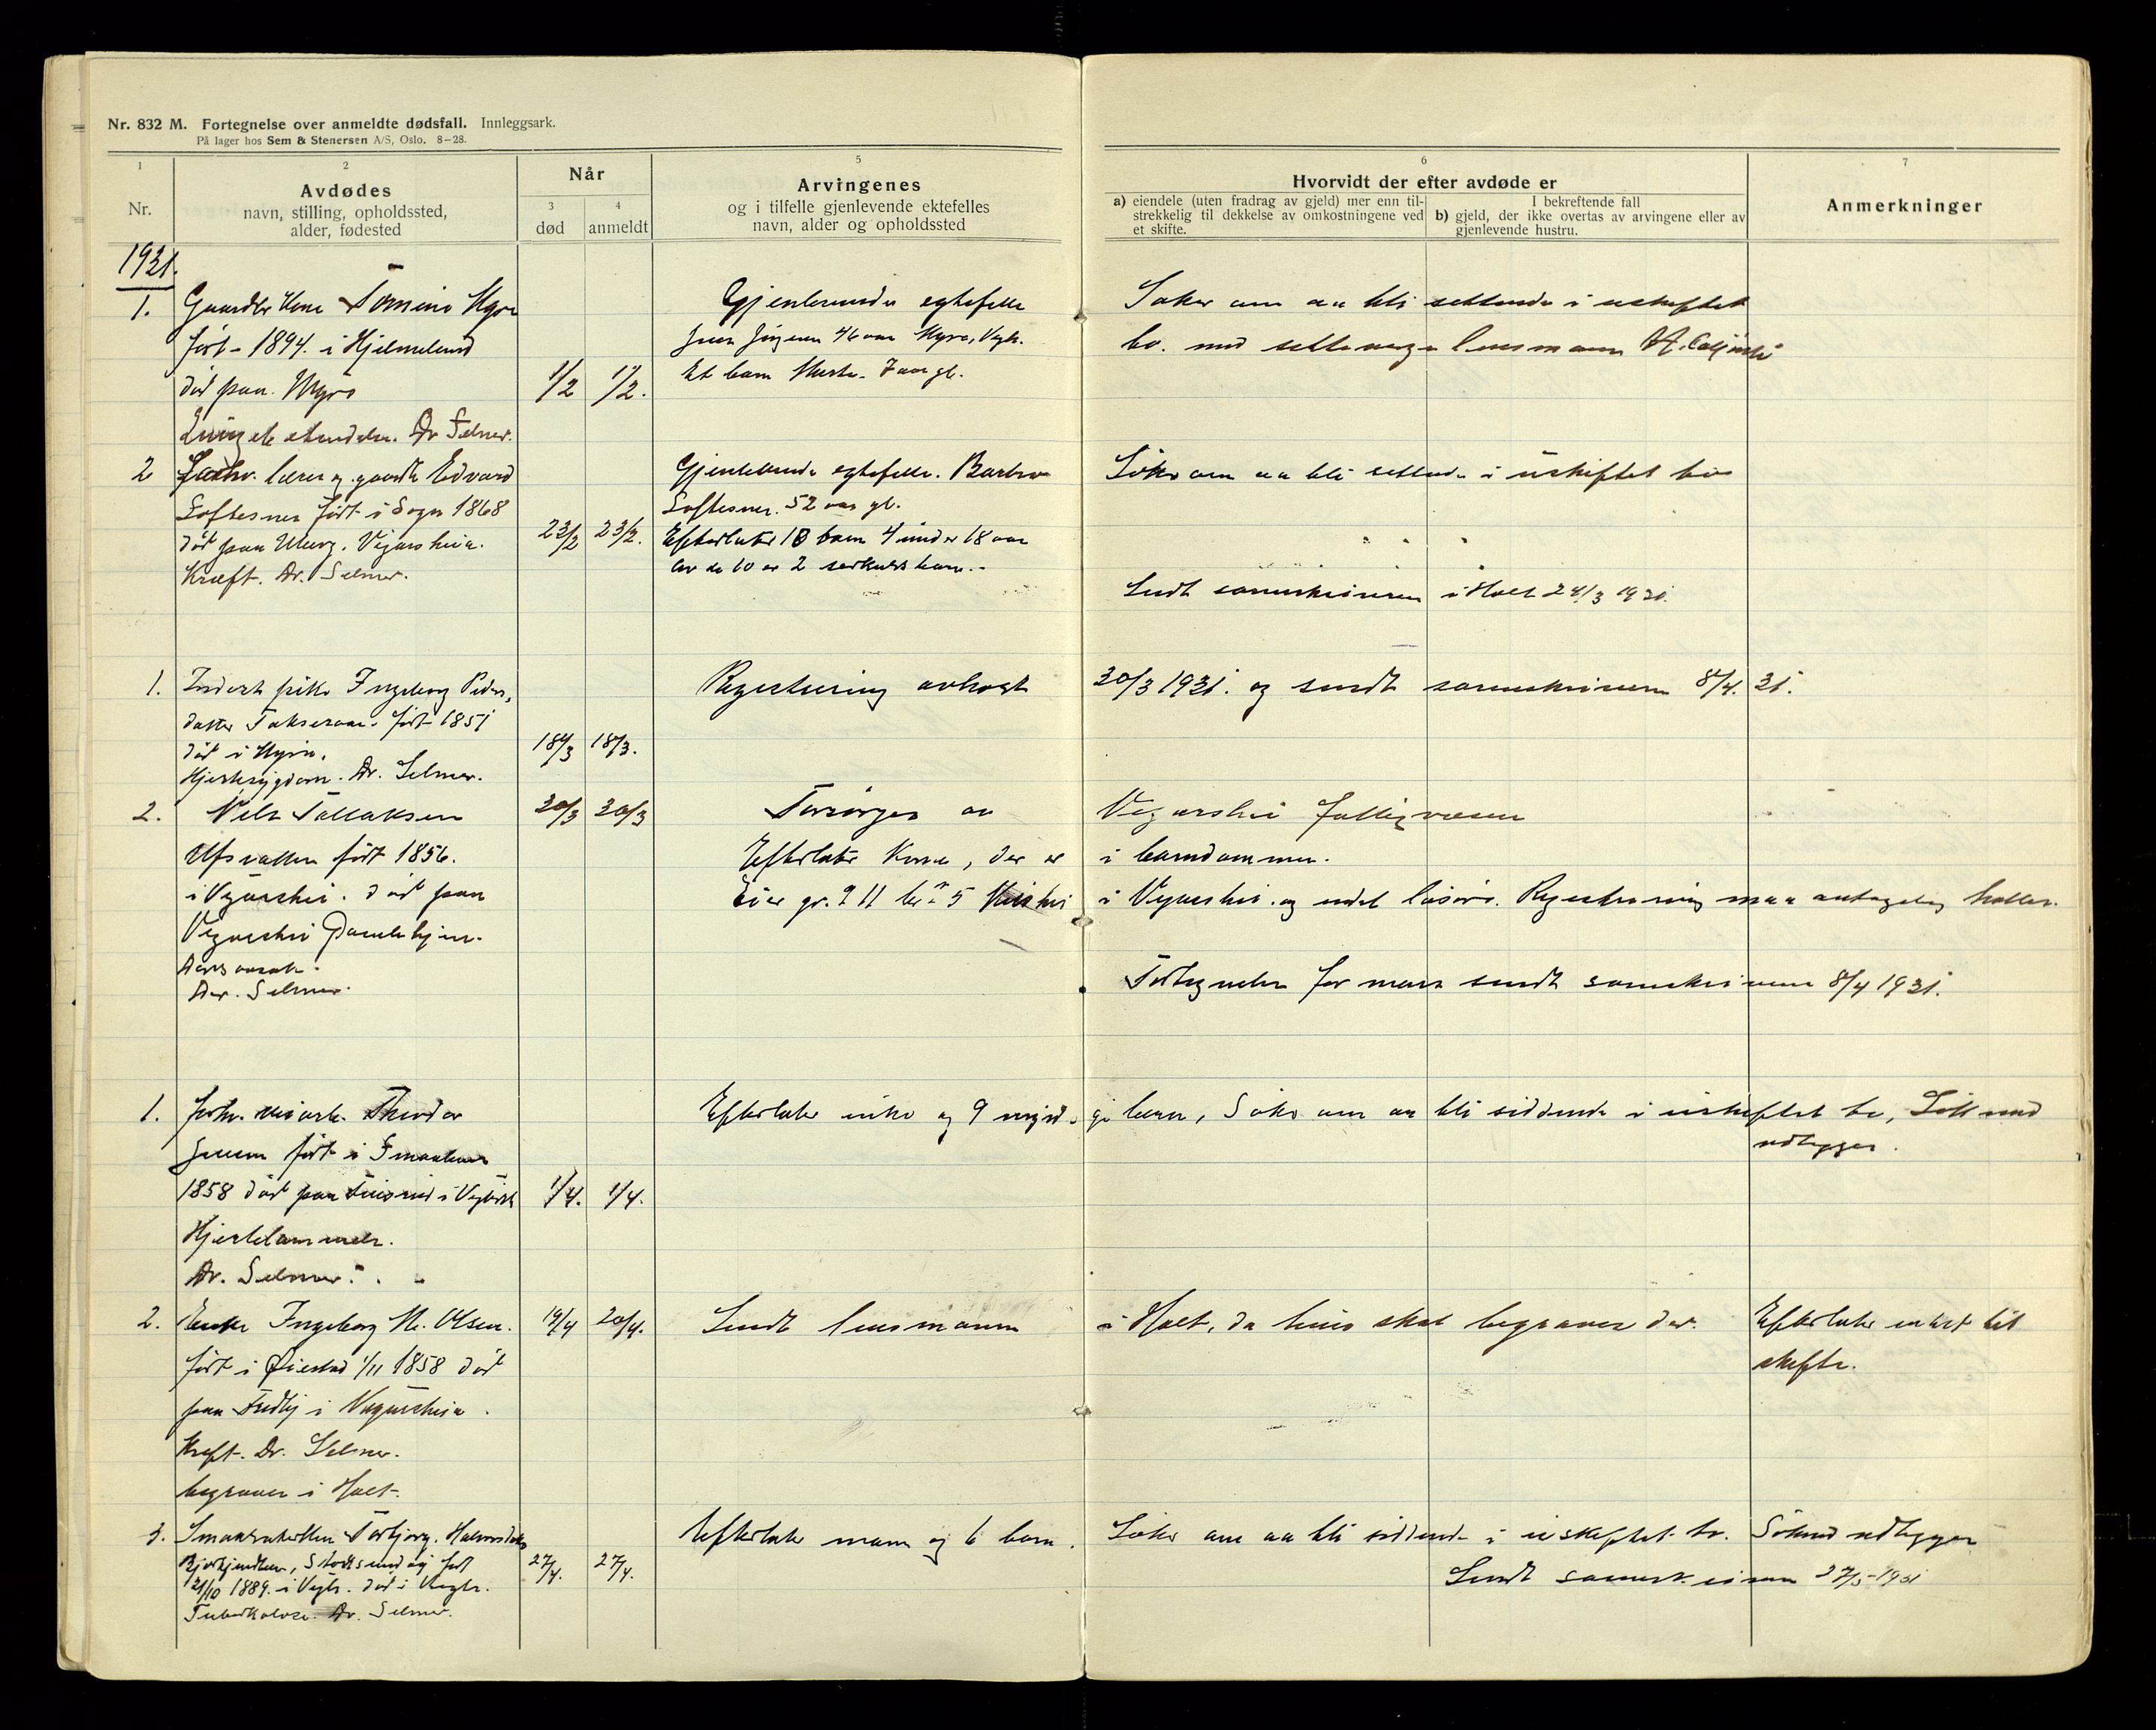 Nr. 832 M. Fortegnelse over anmeldte dødsfall. Innleggsark.
På lager hos Sem & Stenersen A/S, Oslo. 8—28.
1
Nr.
2
Avdødes
navn, stilling, opholdssted,
alder, fødested
Når
3
død
4
anmeldt
5
Arvingenes
og i tilfelle gjenlevende ektefelles
navn, alder og opholdssted
6
Hvorvidt der efter avdøde er
a) eiendele (uten fradrag av gjeld) mer enn til-
strekkelig til dekkelse av omkostningene ved
et skifte.
I bekreftende fall
b) gjeld, der ikke overtas av arvingene eller av
gjenlevende hustru.
7
Anmerkninger
1931.
1. Gaardbr kone Tomine Myre
født 1894. i Hjelmeland
død paa Myre
Dr Selmer.
1/2 1/2.
Gjenlevende egtefelle
Jens Jørgensen 46 aar Myre, Vegh.
Et barn 7 aar gl.
Søker om aa bli sittende i uskiftet
bo. med lensmann
2 lærer og gaardb Edvard
Loftesnes født i Sogn 1868
død paa Ubergs. Vegarsheia.
Kræft. Dr. Selmer.
23/2 23/2.
Gjenlevende egtefelle. Barbro
Loftesnes. 52 aar gl.
Efterlater 10 barn 4 under 18 aar
av de 10 er 2 særkulsbarn.
Søker om aa bli sittende i uskiftet bo
Sendt sorenskriveren i Holt 24/3 1931.
1. Inderst pike Ingeborg Peders,
datter født 1851
død i Myra.
Hjertesygdom. Dr. Selmer.
18/3 18/3.
Registrering avholdt 30/3 1931. og sendt sorenskriveren 8/4. 31.
2. Nils Tallaksen
Ufsvatten født 1856.
i Vegarshei. død paa
Vegarshei Gamlehjem.
Dr. Selmer.
30/3 30/3
Forsørges av Vegarshei fattigvæsen
Efterlater kone, der er i barndommen.
Eier gr. 11 br. 5 i Vegarshei. og endel løsøre. Registrering maa antagelig holdes.
Fortegnelse for mars sendt sorenskriveren 8/4 1931.
1. forhv. Theodor
Jensen født i
1858 død paa i Vegarsh
Hjertelammelse.
Dr. Selmer.
1/4. 1/4.
Efterlater enke og 9 myndige barn, Søker om aa bli siddende i uskiftet bo, Søknad
vedlegges.
2. Enke Ingeborg M. Olsen.
født i Øiestad 1/11 1858 død
paa i Vegarsheia.
Kreft. Dr. Selmer.
begraves i Holt.
19/4 20/4.
Sendt lensmannen i Holt, da hun skal begraves der.
Efterlater intet til
skifte.
3. Torbjørg
født
21/10 1889. i Vegh. død i Vegh.
Tuberkulose. Dr. Selmer.
27/4. 27/4.
Efterlater mann og 6 barn. Søker om aa bli siddende i uskiftet bo. Søknad vedlegges
Sendt sorenskriveren 27/5-1931